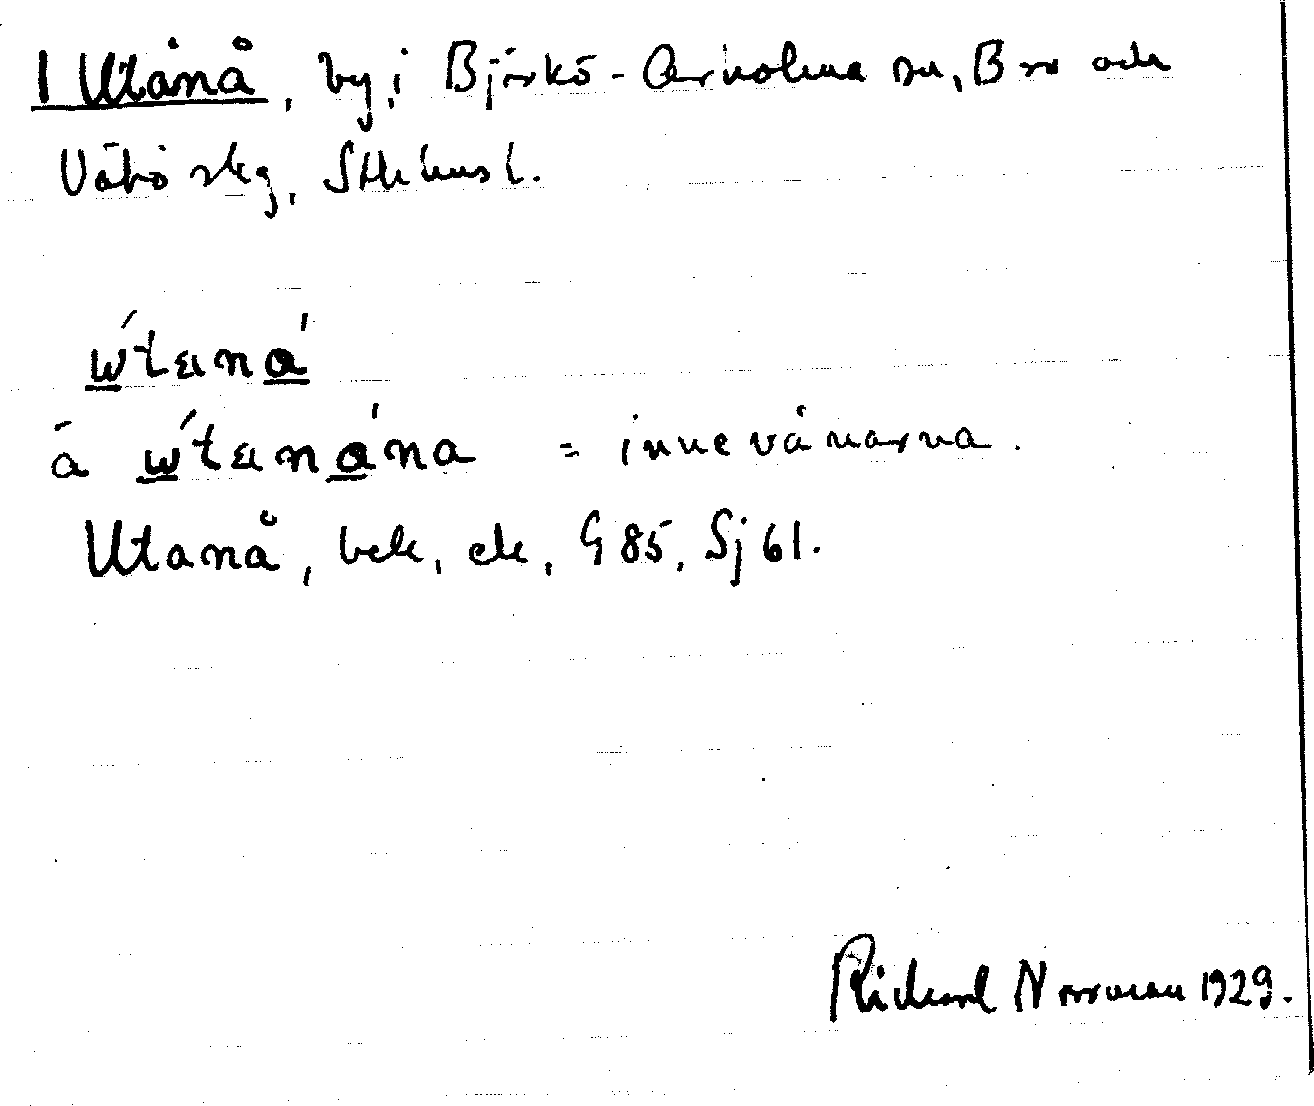 1 Utånå, by, i Björkö-Arholma sn, Bro och
Vätö skg, Sthlms l.
ẃtaná
á ẃtanána = innevånarna.
Utanå, bek, ek, G 85, Sj 61.
Rickard Norrman 1929.